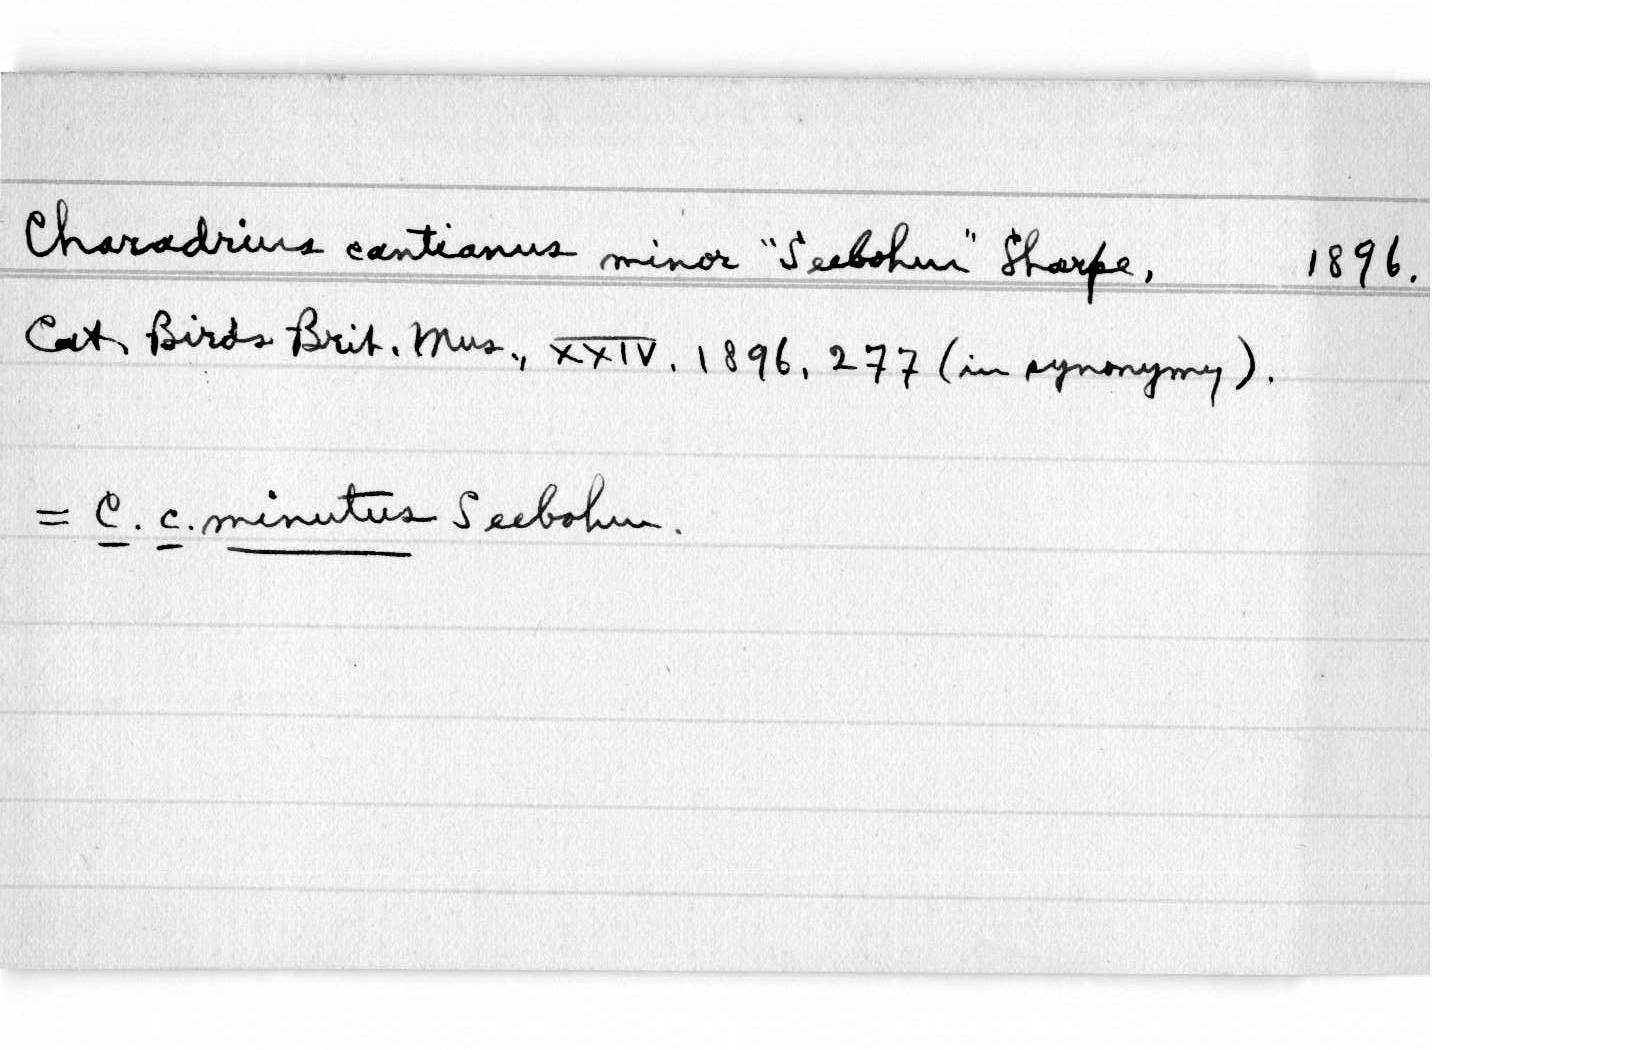 Charadrius cantianus minor "Seebohm" Sharpe, 1896.
Cat. Birds Brit. Mus., XXIV, 1896, 277 (in synonymy).
= C. c. minutus Seebohm.